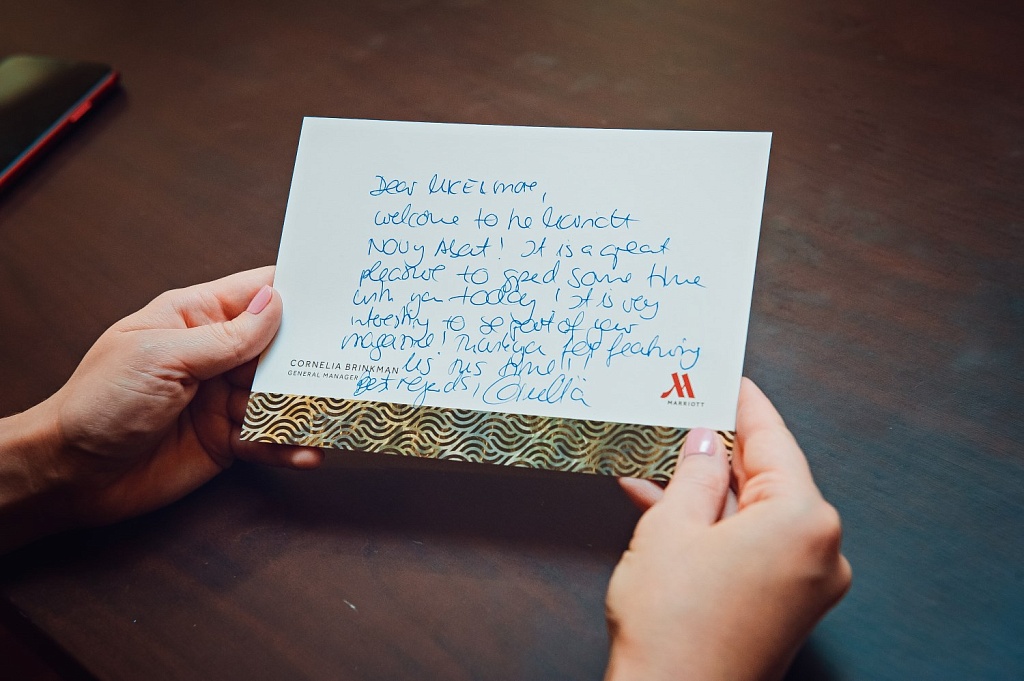 Dear
welcome to he
Novy Arbat! It is a great
pleasure to sped some time
with you today! It is very
interesting to be part of your
magazine! Thankyou for featuring
us this time!!!
Best regards, Cornelia
CORNELIA BRINKMAN
GENERAL MANAGER
MARRIOTT